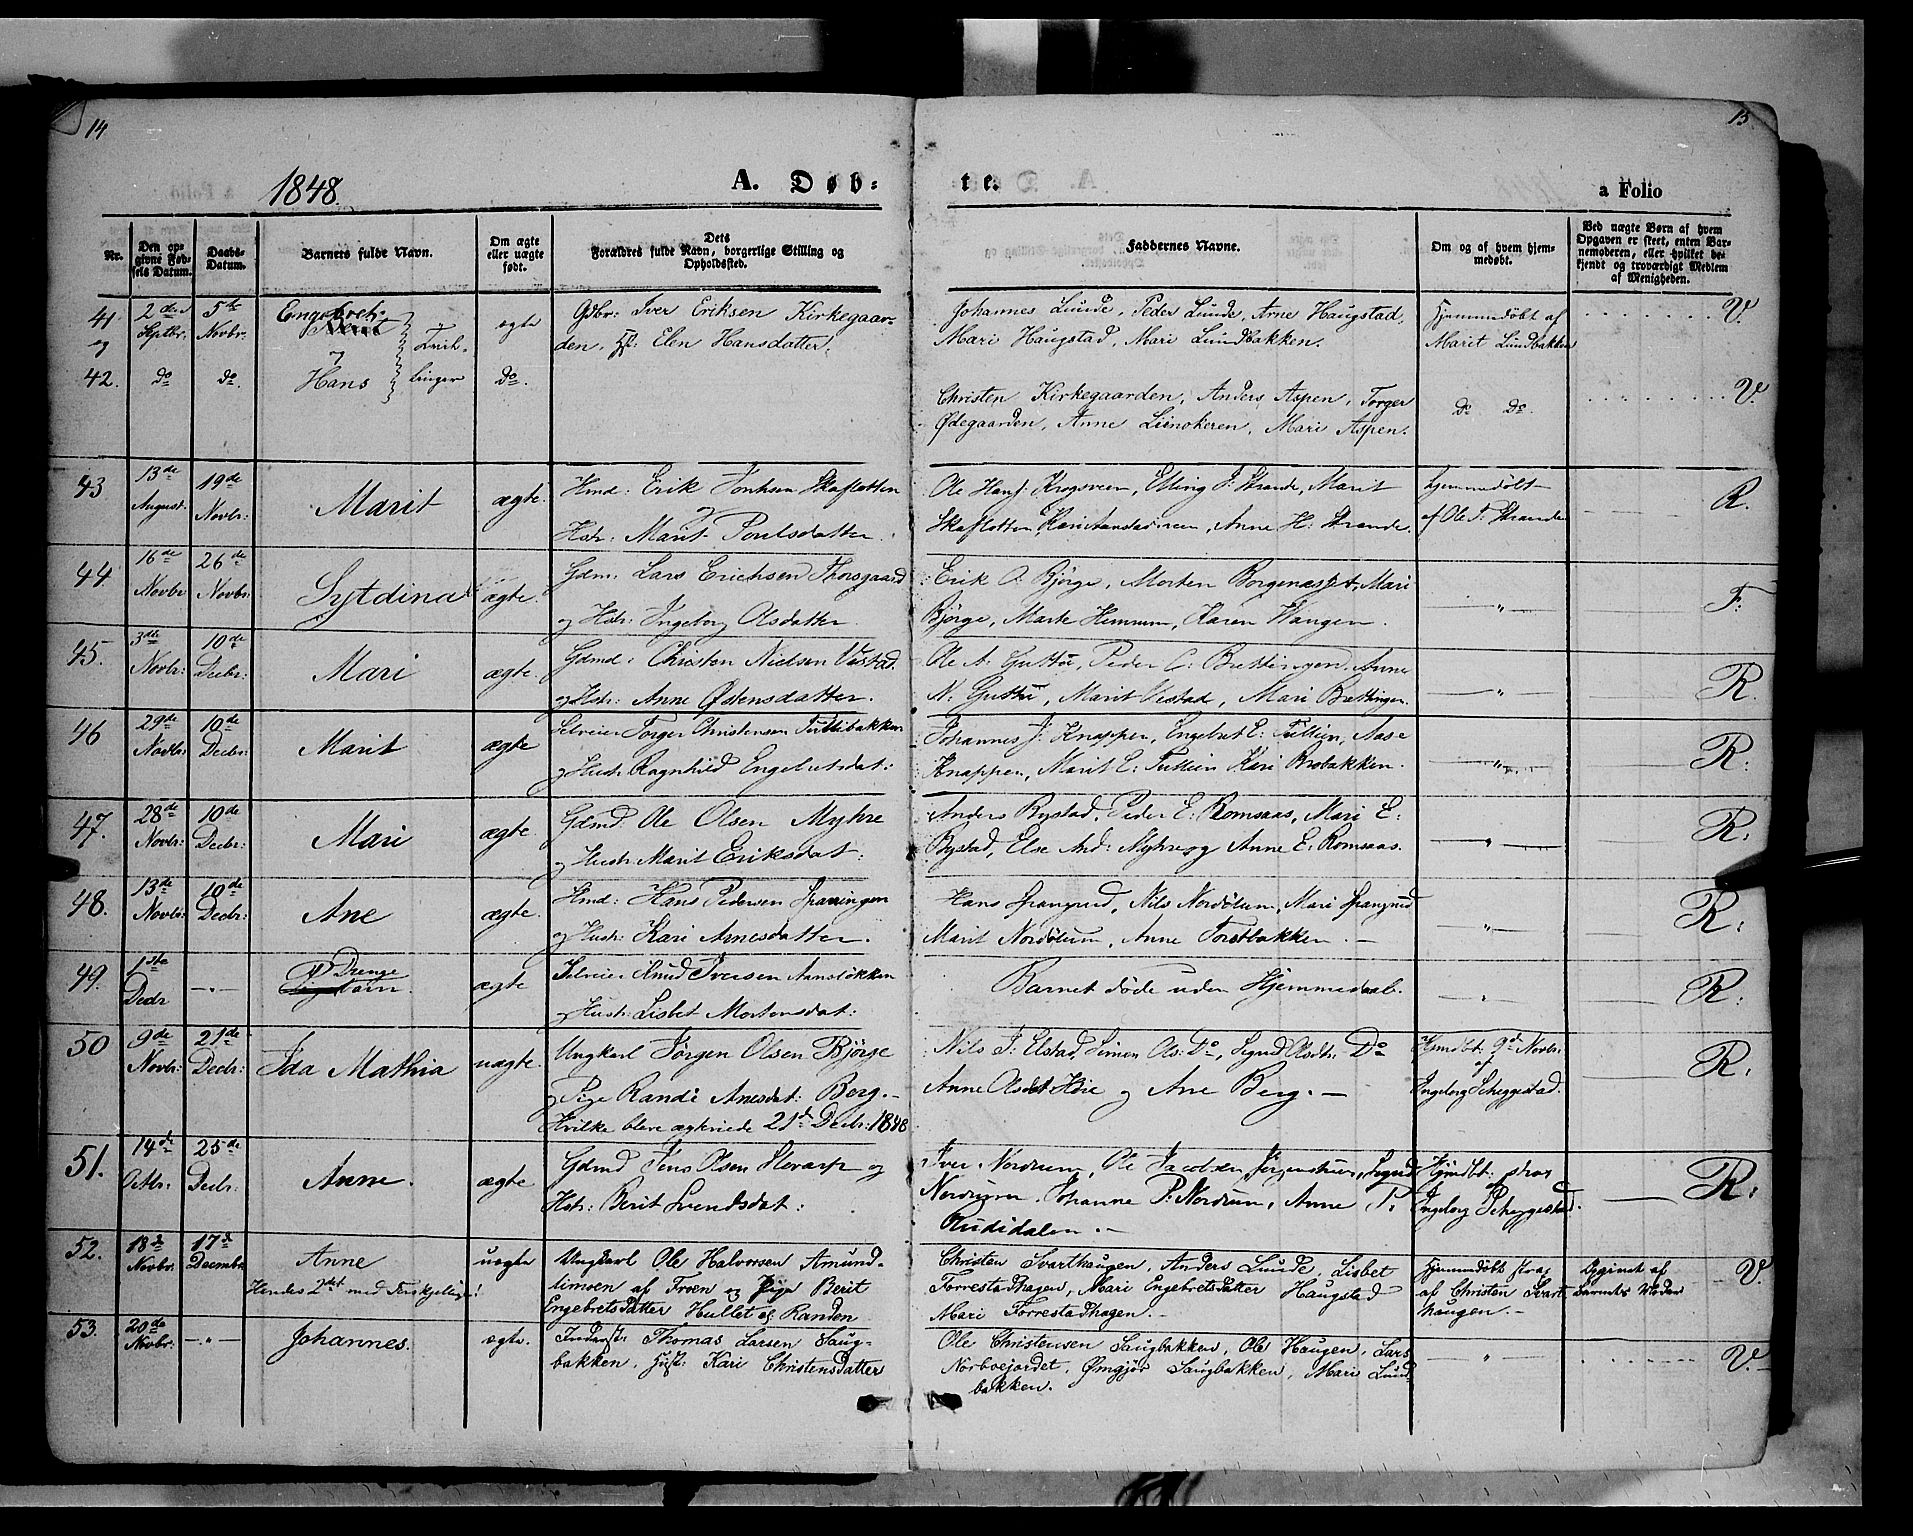 14
15
1848.
A. Døb-
te.
a Folio
Nr.
Den op-
givne Fød-
sels Datum.
Daabs-
Datum.
Barnets fulde Navn.
Om ægte
eller uægte
født.
Dets
Forældres fulde Navn, borgerlige Stilling og
Opholdssted.
Faddernes Navne.
Om og af hvem hjem-
medøbt.
Ved uægte Børn af hvem
Opgaven er skeet, enten Bar-
nemoderen, eller hvilket be-
kjendt og troværdigt Medlem
af Menigheden.
41 2den 5te Engebret ægte Gdbr: Iver Eriksen Kirkegaar- Johannes Lunde, Peder Lunde, Arne Haugstad, Hjemmedøbt af V.
og Septbr. Novbr: og den, H: Elen Hansdatter. Mari Haugstad, Mari Lundbakken. Marit Lundbakken
42. do do Hans do. Christen Kirkegaarden, Anders Aspen, Torger Do Do. V.
Ødegaarden, Anne, Mari Aspen.
43 13de 19de Marit ægte. Hmd: Erik Skaflotten Ole Hans: Krogsveen, Elling P. Strande, Marit hjemmedøbt R.
August. Novbr: Hstr: Marit Poulsdatter. Skaflotten, Kari, Anne H: Strande. af Ole T: Strande
44 16de 26de Sytdina ægte. Gdm: Lars Erichsen Thorsgaard Erik O: Bjørge, Morten, Mari F:
Novbr Novbr: og Hstr: Ingeborg Olsdatter Bjørge, Marte, Karen Wangen.
45. 3die 10de Mari ægte. Gdmd: Christen Nielsen Vestad Ole A: Guttu, Peder C: Brettingen, Anne R.
Novbr: Decbr: og Hstr: Anne Ødensdatter. N: Guttu, Marit Vestad, Mari Brettingen.
46 29de 10de Marit ægte Selveier Torger Christensen Tullibakken Johannes J: Knappen, Engebret E: Tullien, Aase R:
Novbr: Decbr: og Hustr: Ragnhild Engebretsdat: Knappen, Marit E: Tullien Kari Brobakken.
47. 28de 10de Mari ægte. Gdmd. Ole Olsen Myhre Anders Rystad, Peder E: Romsaas, Mari E: R:
Novbr: Decbr: og Hustr: Marit Eriksdat: Rystad, Else And: Myhre og Anne E: Romsaas.
48. 13de 10de Ane ægte. Hmd: Hans Pedersen Hans Spangrud, Nils Nordølum, Mari Spangrud R:
Novbr: Decbr: og Hustr: Kari Arnesdatter. Marit Nordølum, Anne.
49. 1ste Drenge ægte Selveier Knud Iversen Aansløkken Barnet døde uden Hjemmedaab. R:
Decbr barn. og Hustr: Lisbet Mortensdat:
50 9de 21de Ida Mathia uægte. Ungkarl Jørgen Olsen Bjørge Nils J: Elstad, Simen Ols: Do, Sigrid Olsdtr: Do Hjmdbt: 9d Novbr: R:
Novbr: Decbr: og Pige Randi Arnesdat: Berg. Anne Olsdat og Ane Berg. af Ingeborg Scheggestad.
Hvilke bleve ægteviede 21de Decbr: 1848
51. 14de 25de Anne. ægte Gdmd Jens Olsen og Iver Nordrum, Ole Jacobsen, Sigrid Hjmdbt: strax R:
Octbr: Decbr: Hstr: Berit Svendsdat: Nordrum, Johanne P: Nordrum, Anne P: af Ingeborg Scheggestad.
Rudidalen.
52. 18de 17de Anne uægte Ungkarl Ole Halvorsen Amund- Christen Svarthaugen, Anders Lunde, Lisbet Hjemmedøbt strax Opgivet af V.
Novbr. Decembr Hendes 2det med! af Troen og Pige Berit Forrestadhagen, Mari Engebretsdatter Haugstad af Christen Svart- Barnets Moder
Engebretsdatter Hullet af Randen Mari Forrestadhagen. haugen.
53. 20de Johannes. ægte. Thomas Larsen Saug- Ole Christensen Saugbakken, Ole Haugen, Lars V.
Novbr: bakken, Hust: Kari Christensdatter, Saugbakken, Mari Lund-
bakken.